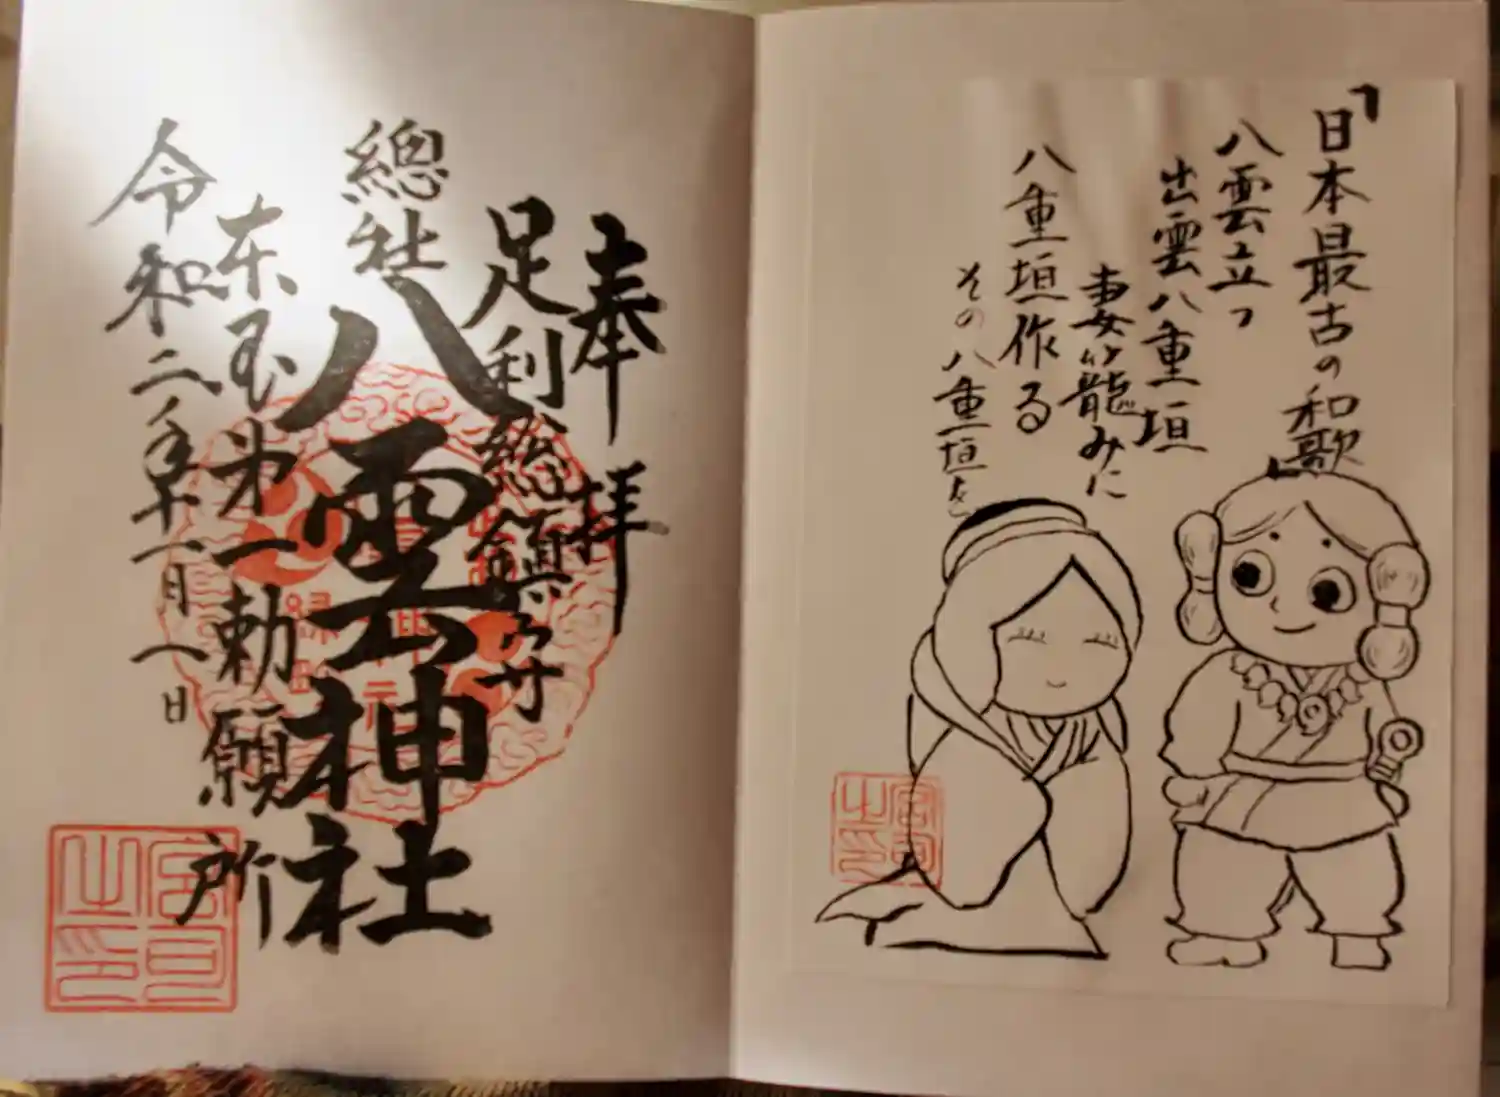 「日本最古の和歌
八雲立つ
出雲八重垣
妻籠みに
八重垣作る
その八重垣を
宮司之印
奉拝
足利総鎮守
總社八雲神社
東国第一勅願所
令和二年十一月八日
宮司之印